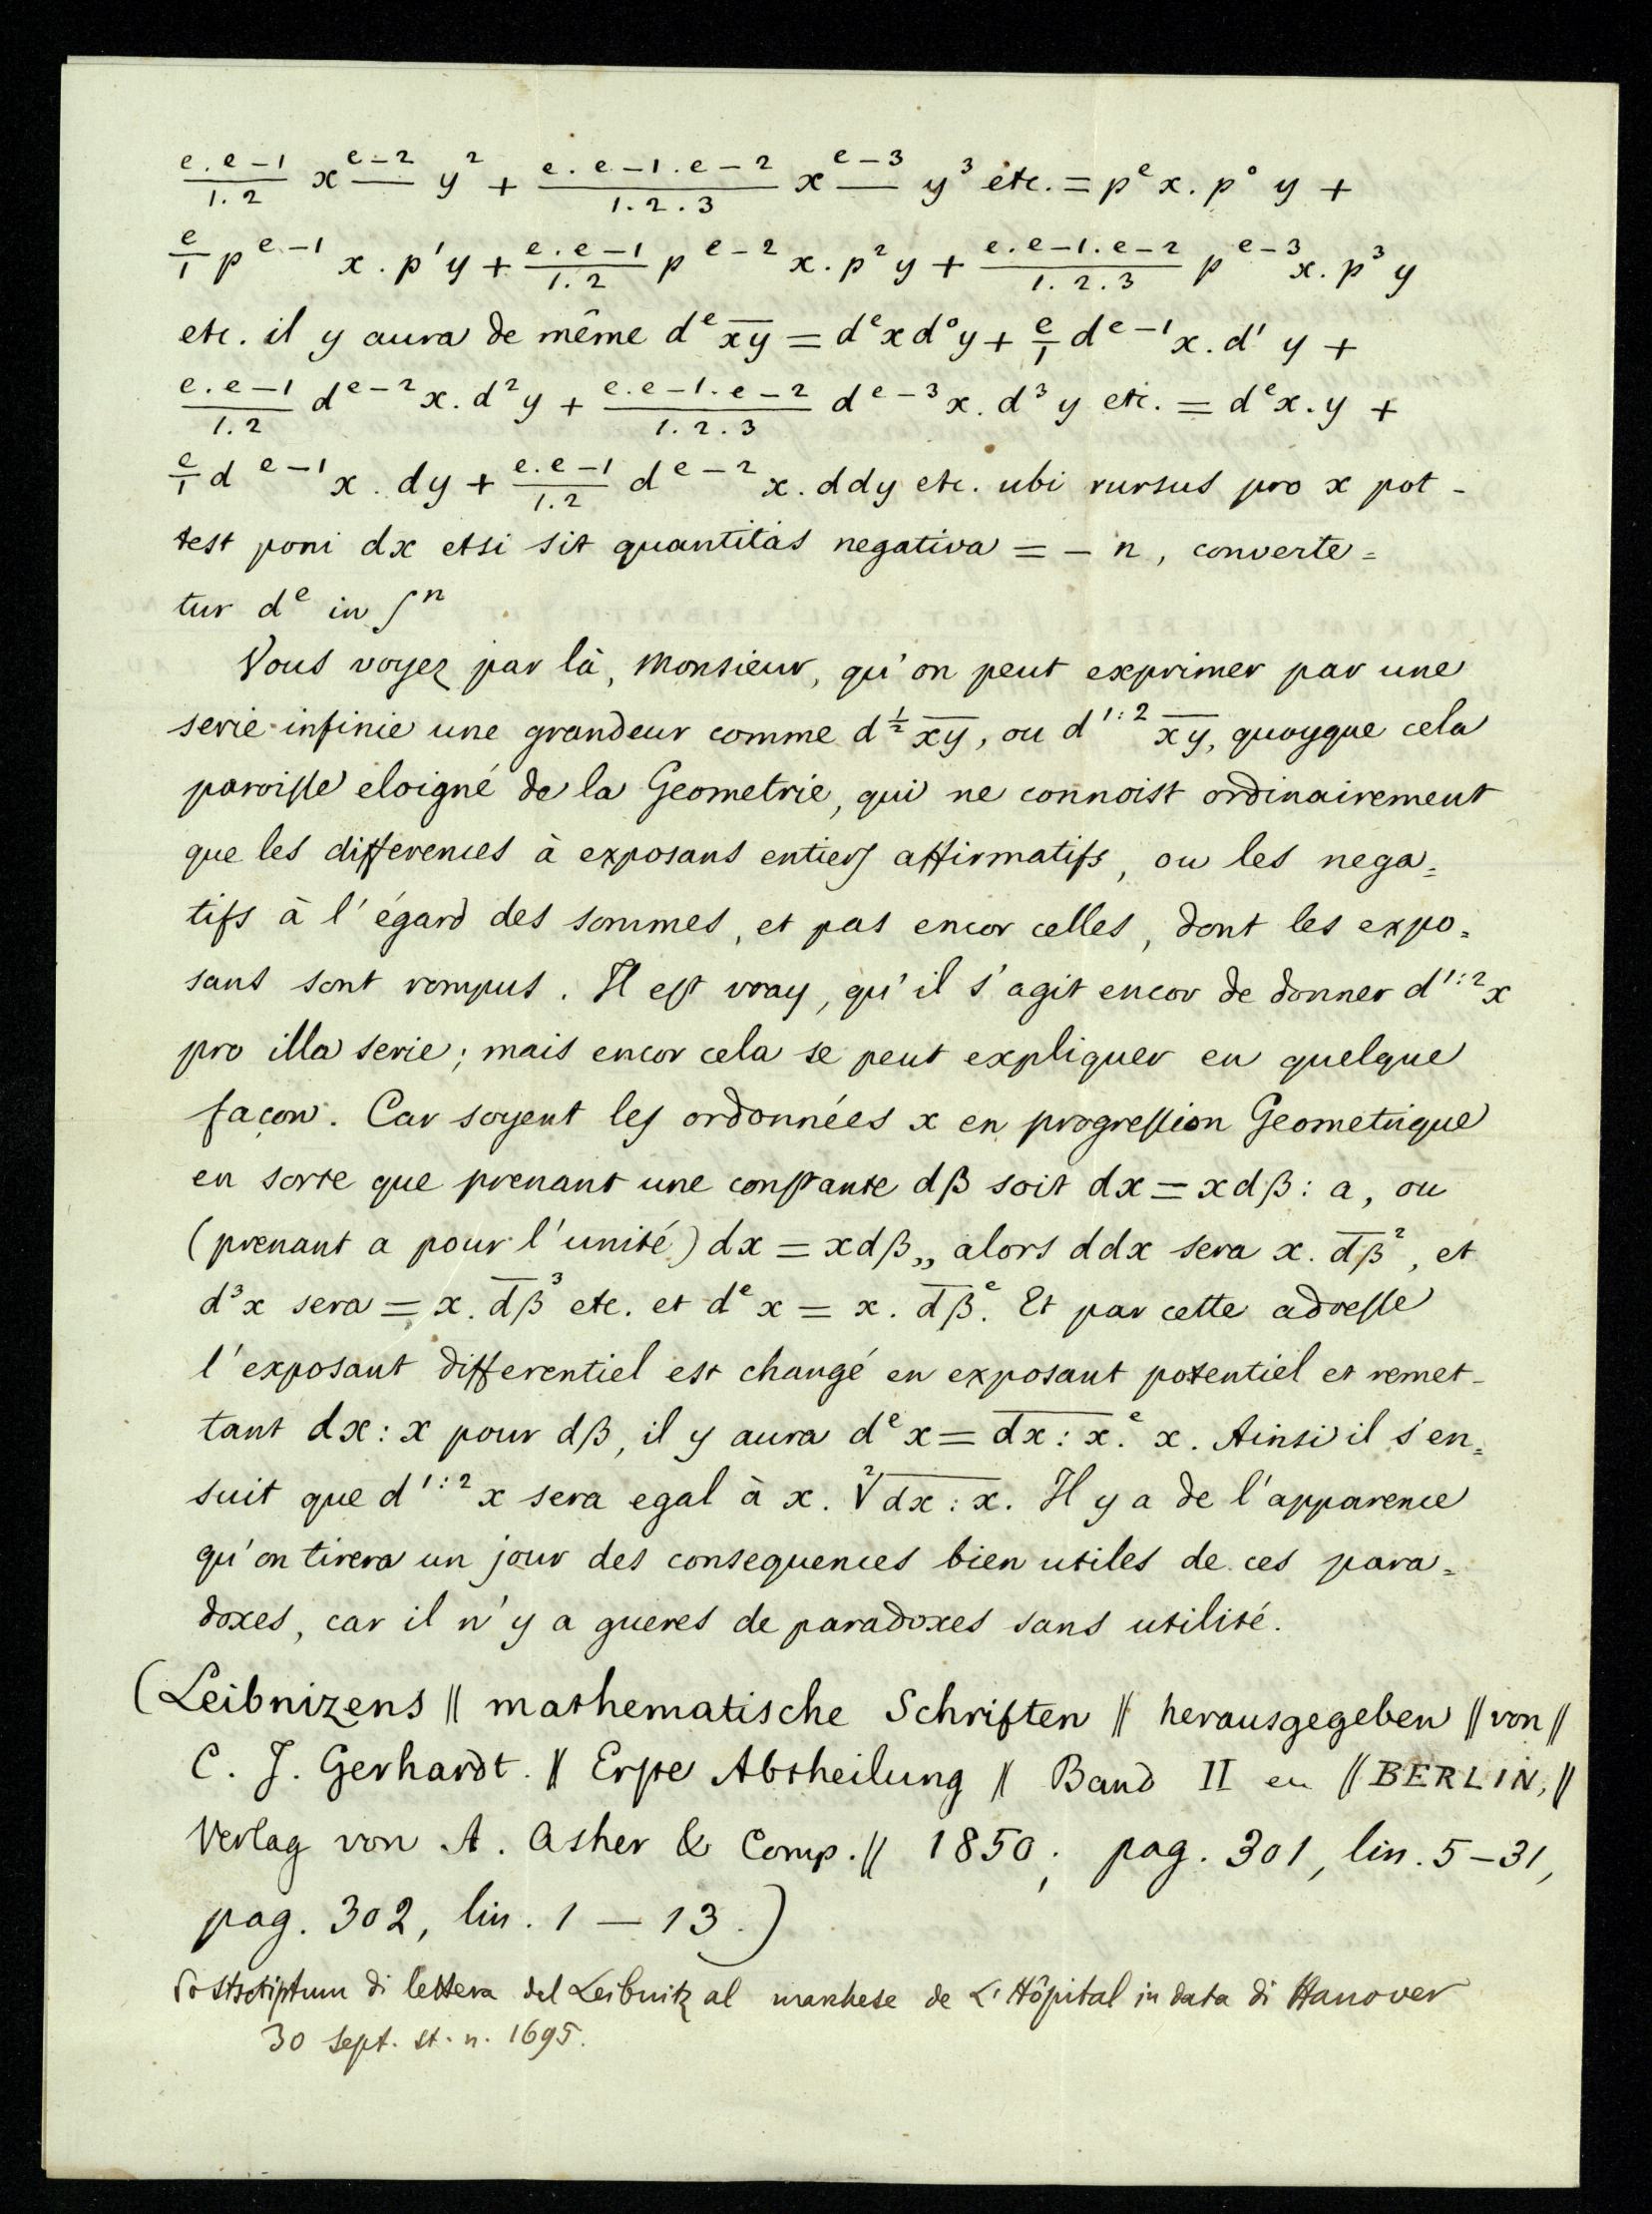 e.e-1/1.2 x^e-2 y² + e.e-1.e-2/1.2.3 x^e-3 y³ etc. = p^e x. p° y +
e/1 p^e-1 x. p'y + e.e-1/1.2 p^e-2 x. p²y + e.e-1.e-2/1.2.3 p^e-3 x. p³ y
etc. il y aura de même d^e x̅y̅ = d^e x d°y + e/1 d^e-1 x. d' y +
e.e-1/1.2 d^e-2 x. d²y + e.e-1.e-2/1.2.3 d^e-3 x. d³ y etc. = d^e x. y +
e/1 d^e-1 x. dy + e.e-1/1.2 d^e-2 x. ddy etc. ubi rursus pro x pot-
test poni dx etsi sit quantitas negativa = - n, converte=
tur d^e in ∫^n
Vous voyez par là, Monsieur, qu'on peut exprimer par une
serie infinie une grandeur comme d^½ x̅y̅, ou d^1:2 x̅y̅, quoyque cela
paroisse eloigné de la Geometrie, qui ne connoist ordinairement
que les differences à exposans entiers affirmatifs, ou les nega=
tifs à l'égard des sommes, et pas encor celles, dont les expo=
sans sont rompus. Il est vray, qu'il s'agit encor de donner d^1:2 x
pro illa serie; mais encor cela se peut expliquer en quelque
façon. Car soyent les ordonnées x en progression Geometrique
en sorte que prenant une constante dβ soit dx = xdβ: a, ou
(prenant a pour l'unité) dx = xdβ,, alors ddx sera x. d̅β̅², et
d³x sera = x. d̅β̅³ etc. et d^e x = x. d̅β̅^e. Et par cette adresse
l'exposant differentiel est changé en exposant potentiel et remet-
tant dx: x pour dβ, il y aura d^e x = d̅x̅:̅ x̅.^e x. Ainsi il s'en=
suit que d^1:2 x sera egal à x. ²√dx: x. Il y a de l'apparence
qu'on tirera un jour des consequences bien utiles de ces para=
doxes, car il n'y a gueres de paradoxes sans utilité.
(Leibnizens || mathematische Schriften || herausgegeben || von ||
C. J. Gerhardt. || Erste Abtheilung || Band II en || BERLIN, ||
Verlag von A. Asher & Comp. || 1850; pag. 301, lin. 5-31,
pag. 302, lin. 1 — 13.)
Postscriptum di lettera del Leibnitz al marchese de L'Hôpital in data di Hanover
30 sept. st. n. 1695.